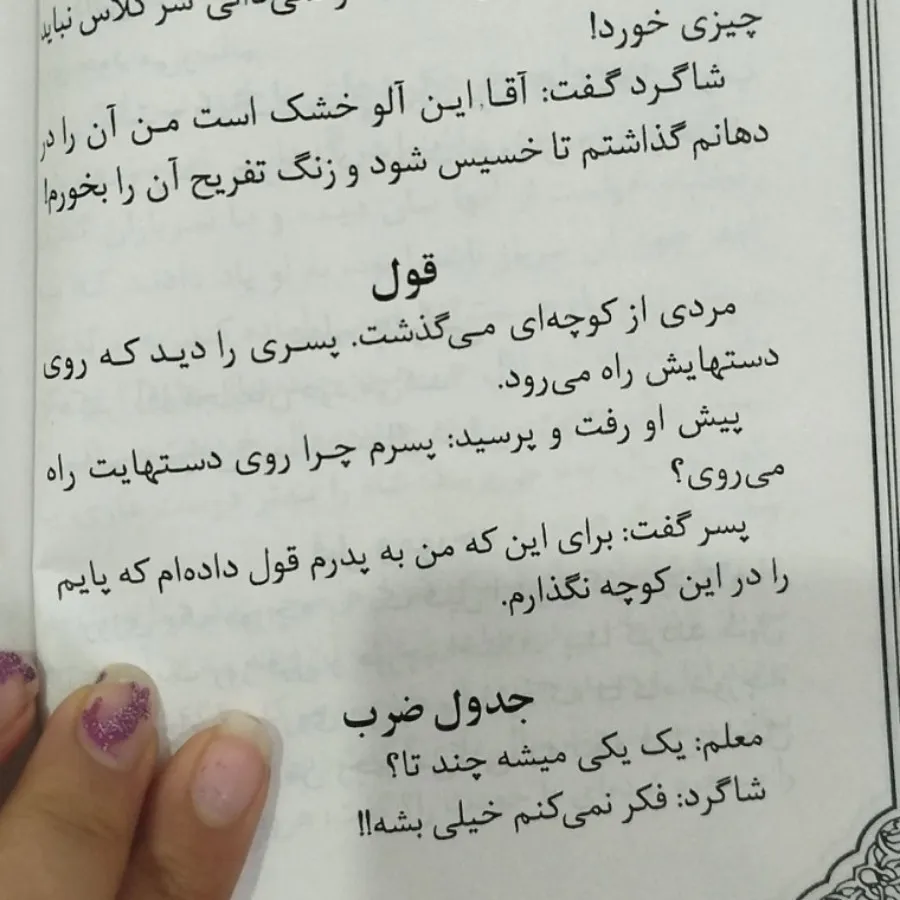 سر کلاس نباید
چیزی خورد!
شاگرد گفت: آقا، این آلو خشک است من آن را در
دهانم گذاشتم تا خسیس شود و زنگ تفریح آن را بخورم!
قول
مردی از کوچه‌ای می‌گذشت. پسری را دید که روی
دستهایش راه می‌رود.
پیش او رفت و پرسید: پسرم چرا روی دستهایت راه
می‌روی؟
پسر گفت: برای این که من به پدرم قول داده‌ام که پایم
را در این کوچه نگذارم.
جدول ضرب
معلم: یک یکی میشه چند تا؟
شاگرد: فکر نمی‌کنم خیلی بشه!!